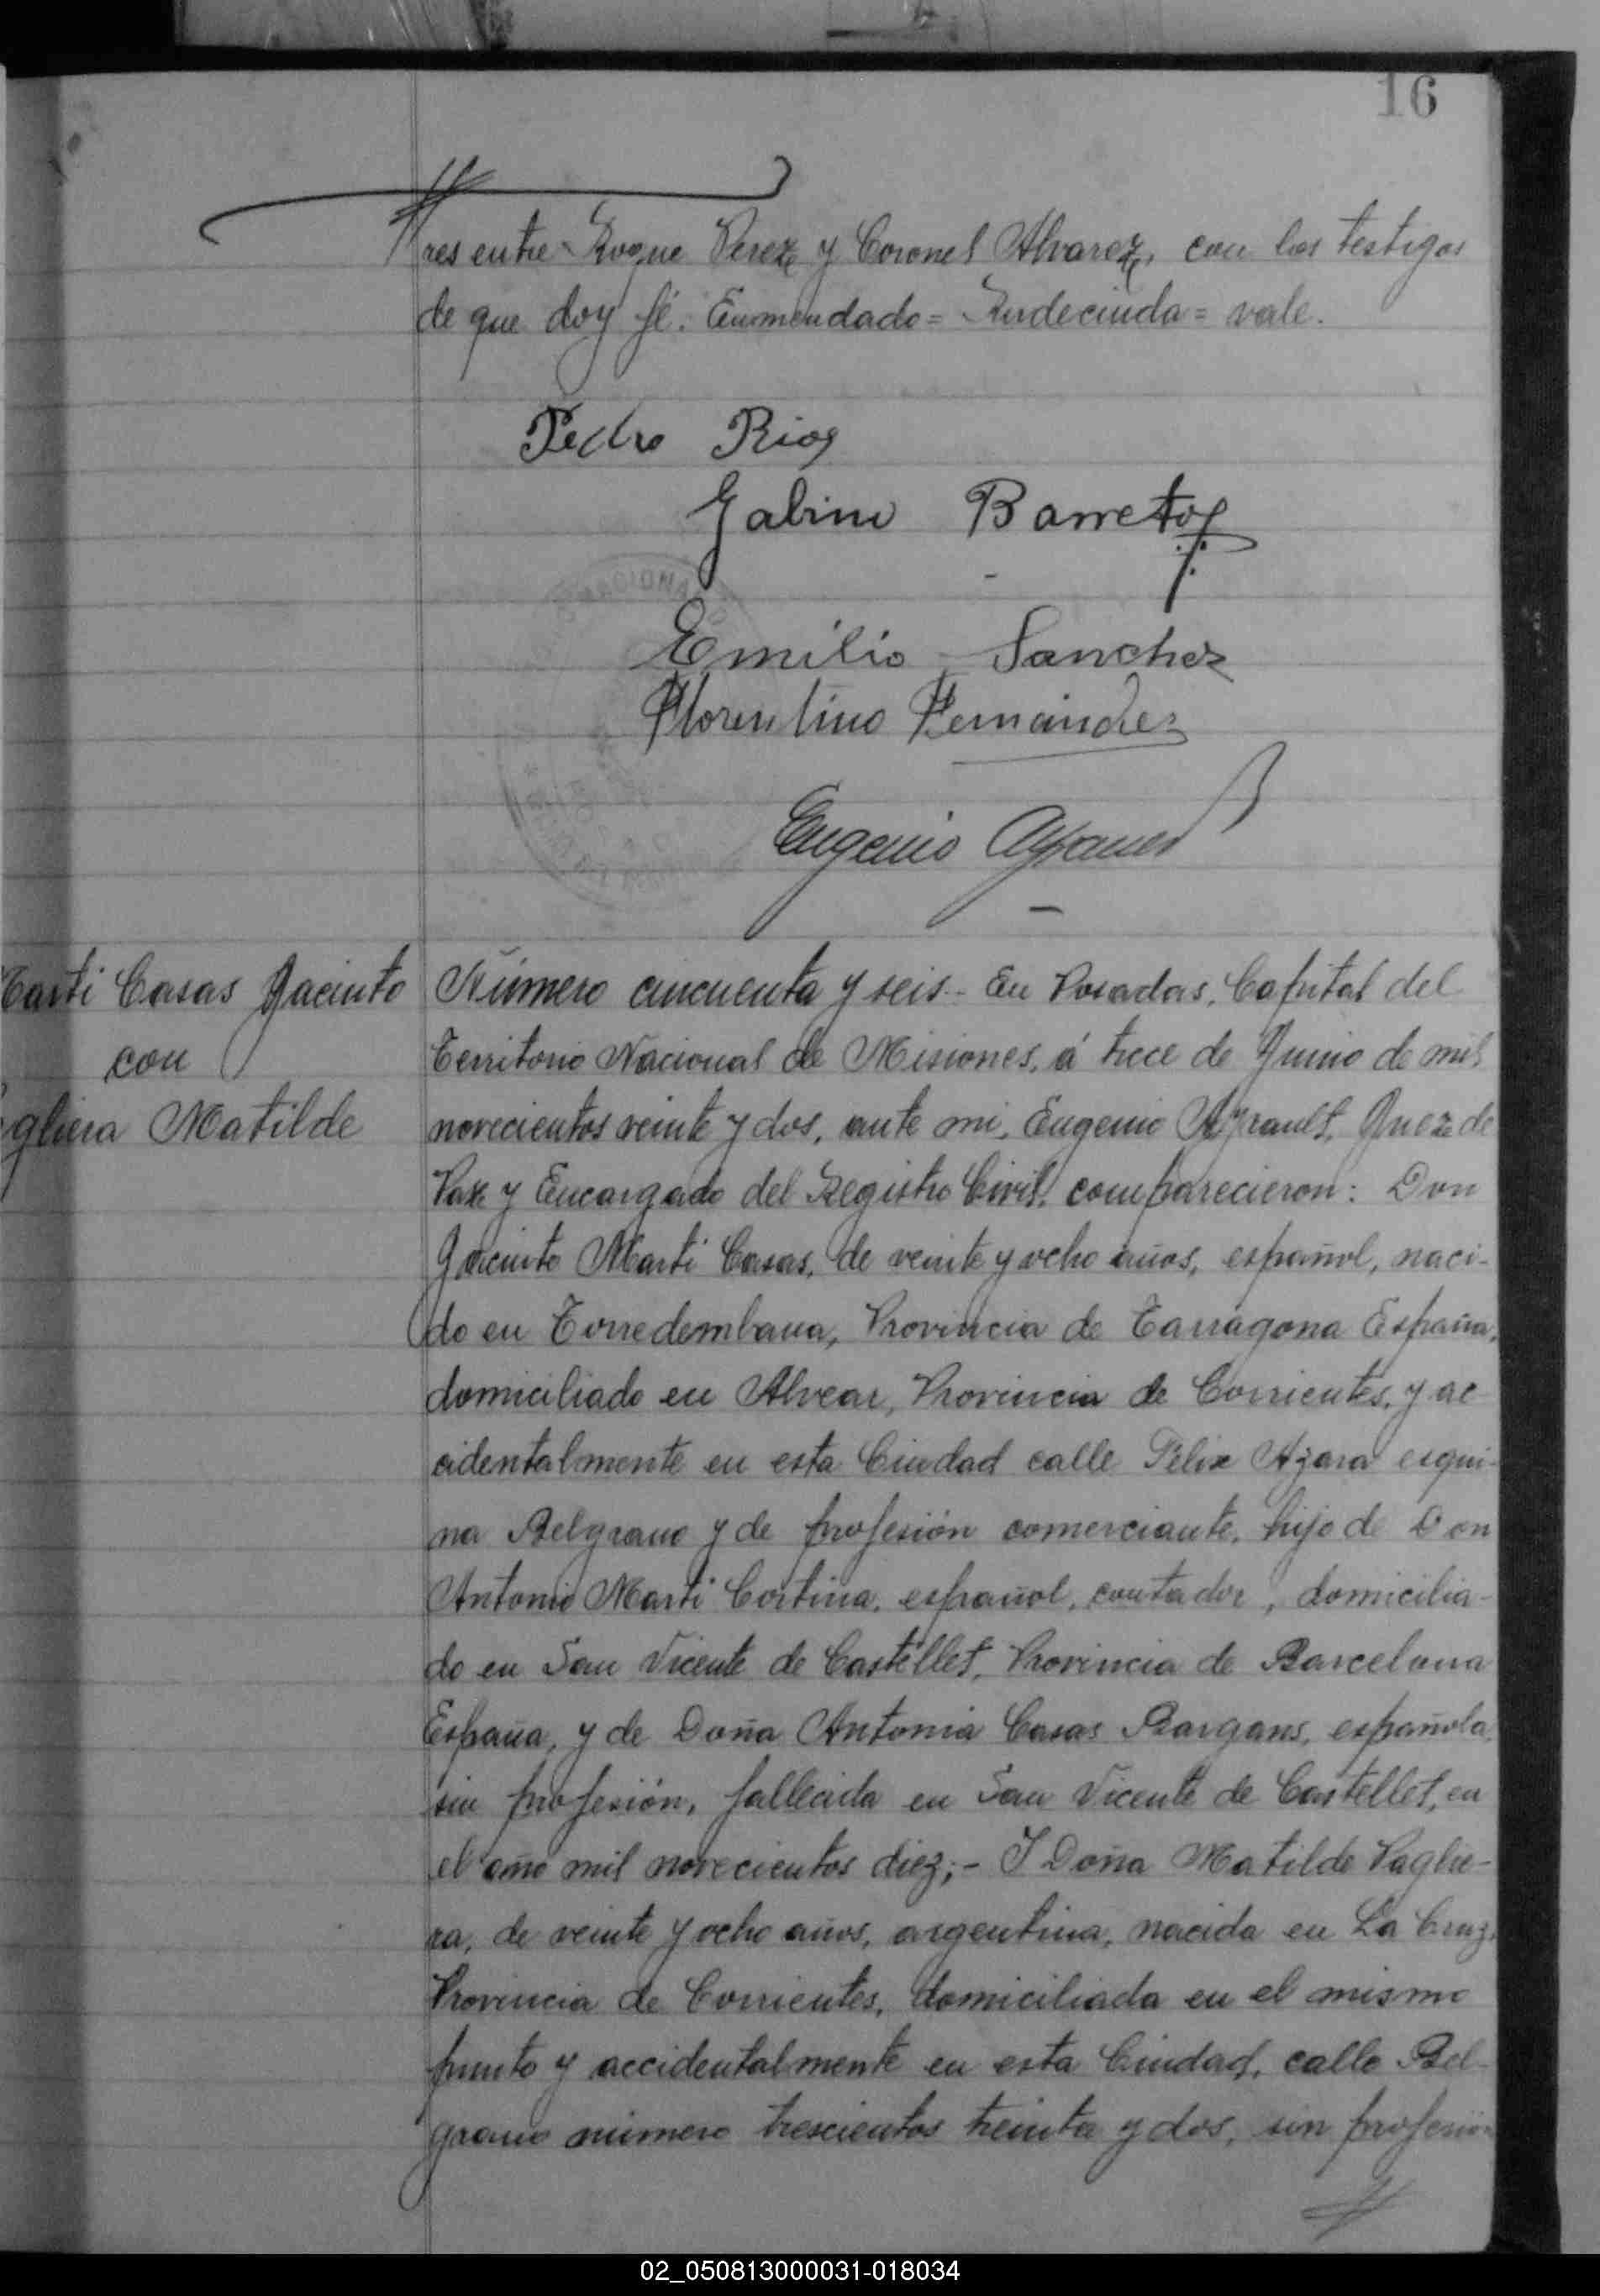 16
res entre Roque Perez y Coronel Alvarez, con los testigos
de que doy fé. Enmendado = Rudecinda = vale.
Pedro Rios
Gabino Barreto
Emilio Sanchez
Florentino Fernández
Eugenio Ayrault
Marti Casas Jacinto
con
gliera Matilde
Número cincuenta y seis.- En Posadas, Capital del
Territorio Nacional de Misiones, á trece de Junio de mil
novecientos veinte y dos, ante mi, Eugenio Ayrault, Juez de
Paz y Encargado del Registro Civil, comparecieron: Don
Jacinto Marti Casas, de veinte y ocho años, español, naci-
do en Torredembana, Provincia de Tarragona España,
domiciliado en Alvear, Provincia de Corrientes, y ac
cidentalmente en esta Ciudad calle Félix Azara esqui-
na Belgrano y de profesión comerciante, hijo de Don
Antonio Marti Cortina, español, contador, domicilia-
do en San Vicente de Castellet, Provincia de Barcelona
España, y de Doña Antonia Casas Bargans, española,
sin profesión, fallecida en San Vicente de Castellet, en
el año mil novecientos diez;- Y Doña Matilde Paglie-
ra, de veinte y ocho años, argentina, nacida en La Cruz,
Provincia de Corrientes, domiciliada en el mismo
punto y accidentalmente en esta Ciudad, calle Bel-
grano número trescientos treinta y dos, sin profesión
02_050813000031-018034